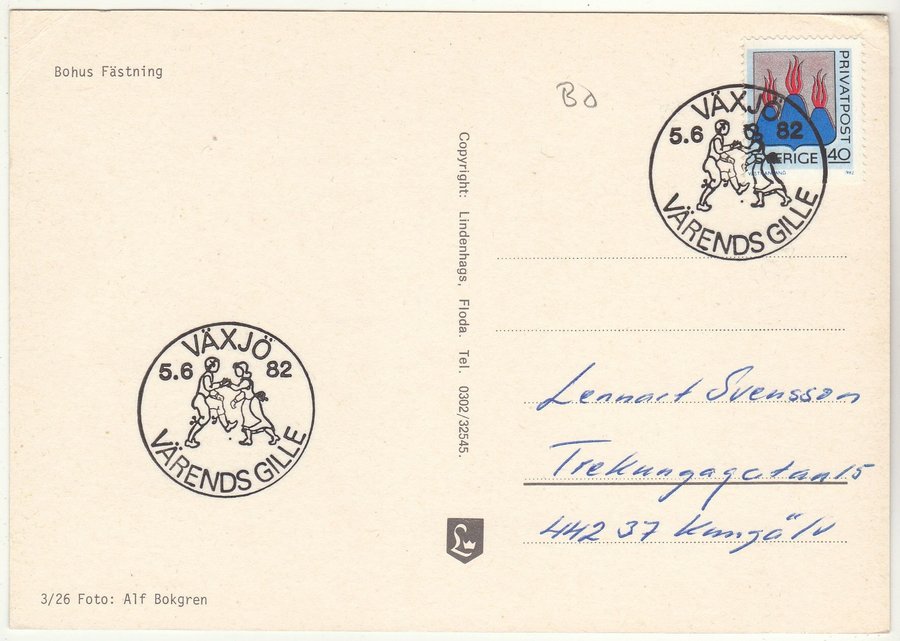 Bohus Fästning
BJ
PRIVATPOST
SVERIGE 140
1982
VÄXJÖ
5.6 82
VÄRENDS GILLE
Copyright: Lindenhags, Floda. Tel. 0302/32545.
Lennart Svensson
Trekungagatan 15
442 37 Kungälv
VÄXJÖ
5.6 82
VÄRENDS GILLE
L
3/26 Foto: Alf Bokgren